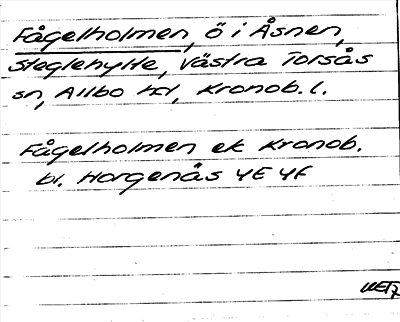 Fågelholmen, ö i Åsnen,
Steglehylte, Västra Torsås
sn, Allbo hd, Kronob. l.
Fågelholmen ek Kronob.
bl. Horgenäs 4E 4F